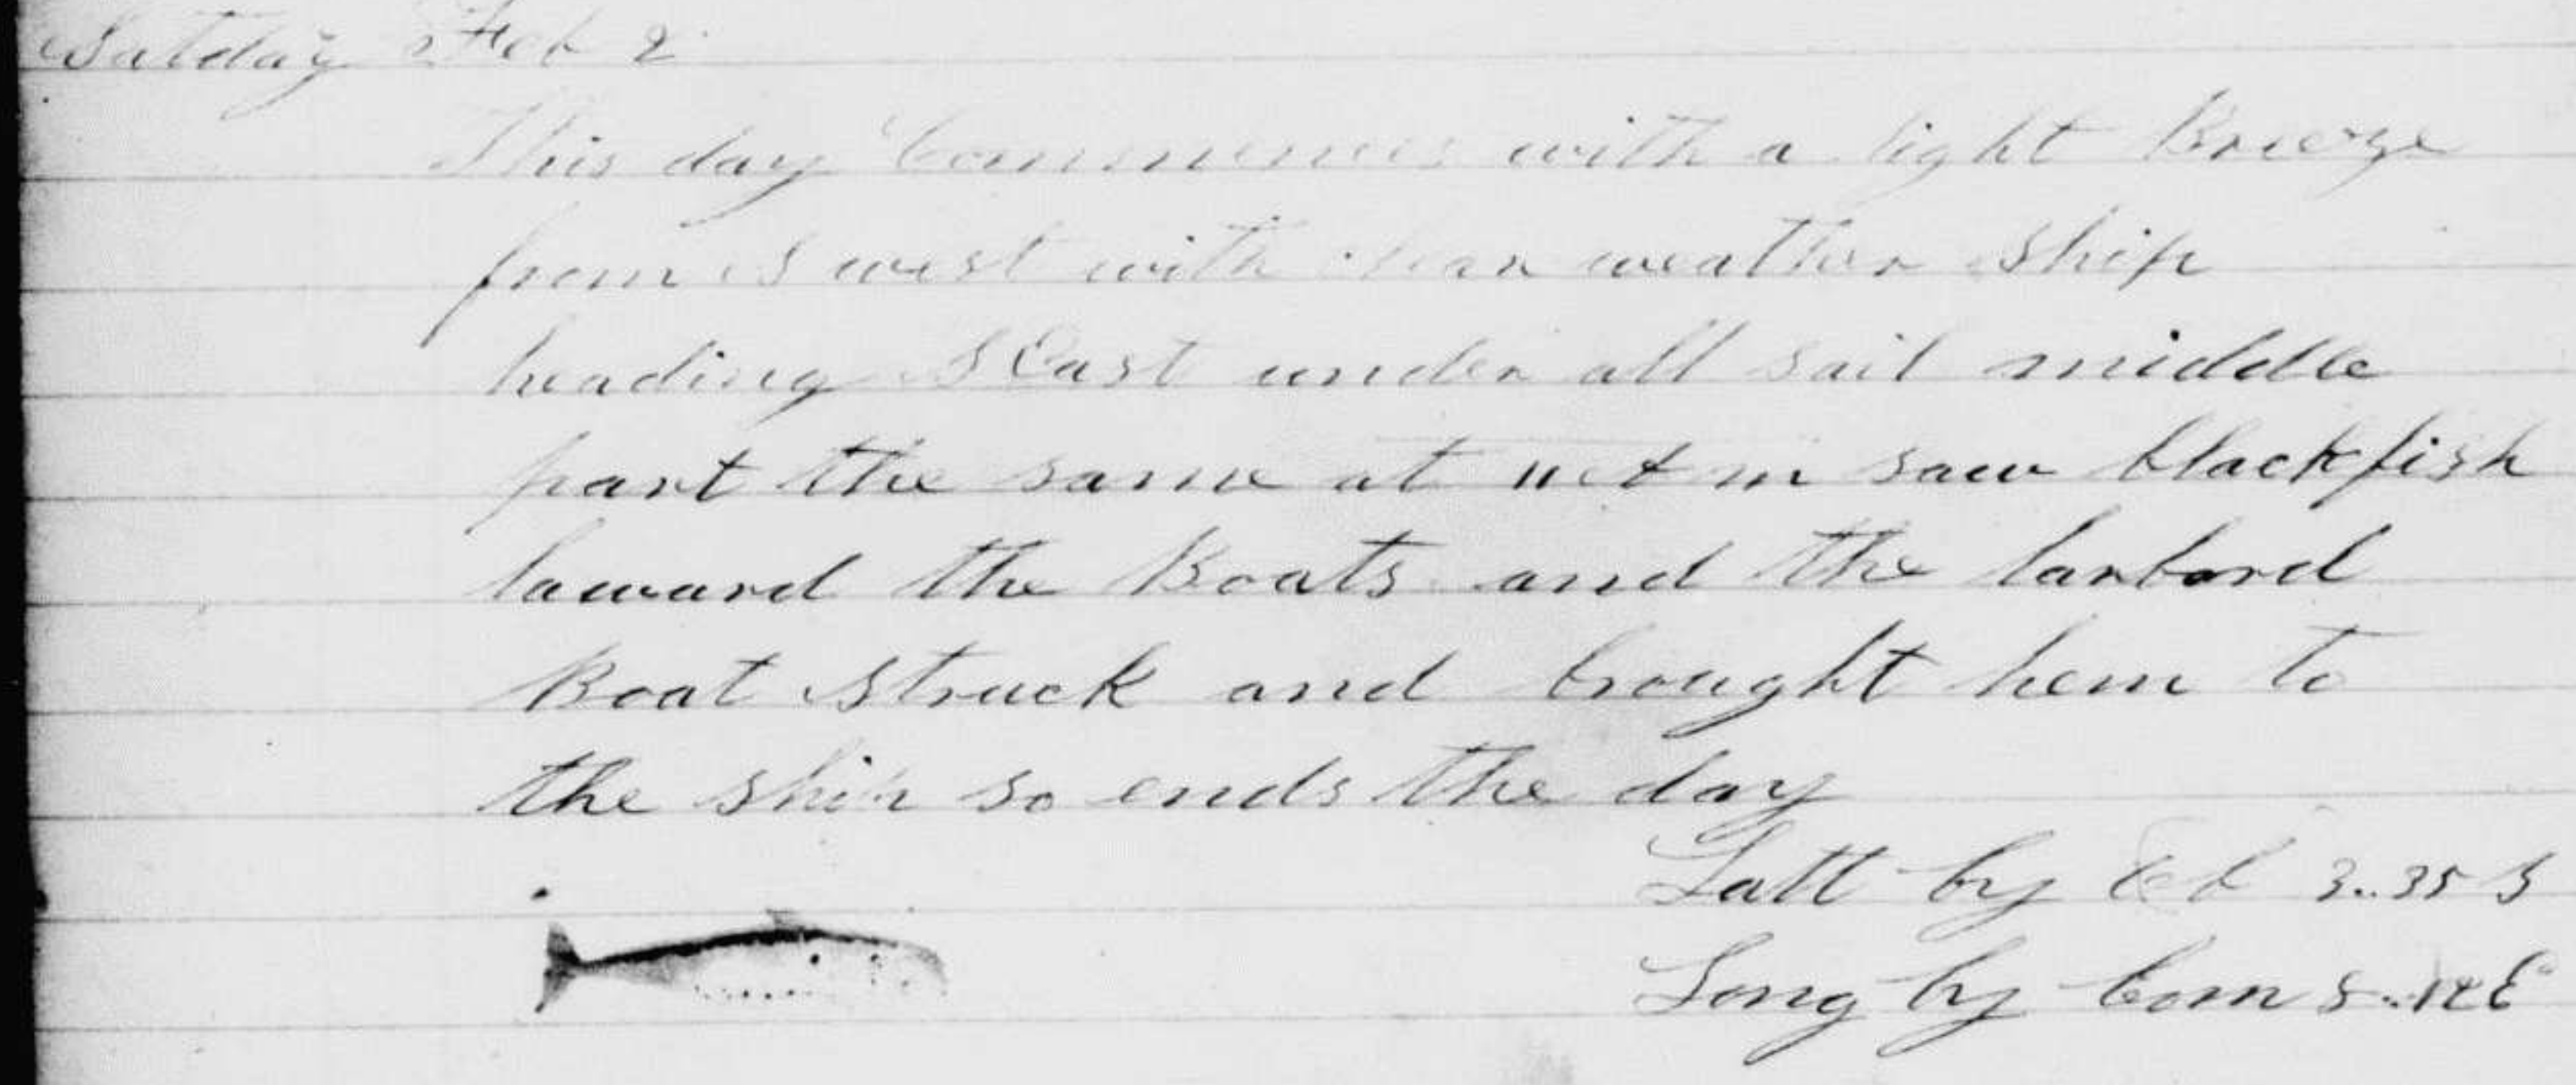 Satday Feb 2
This day Commences with a light Breeze
from S west with clear weather Ship
heading S East under all sail middle
part the same at 11 A m saw blackfish
laward the Boats and the larbord
Boat struck and brought hem to
the ship so ends the day
Latt by 3..35 S
Long by Crom 8..12 E